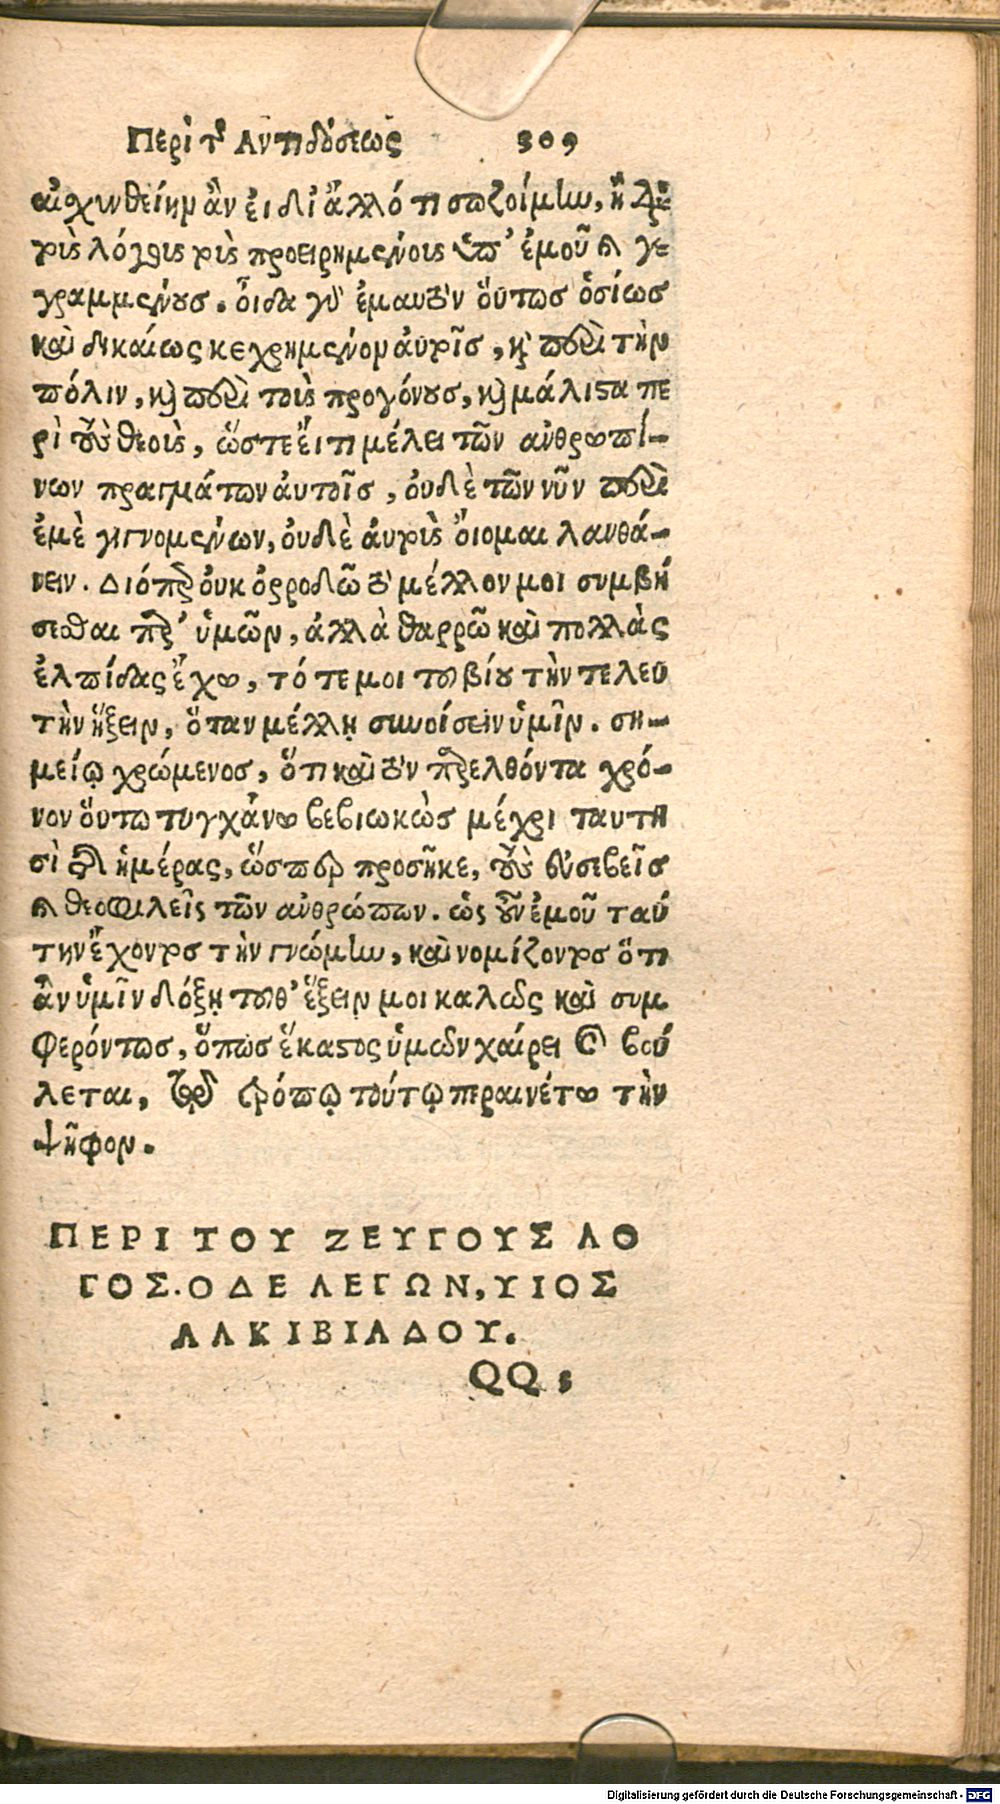 Περὶ τ῀ Αντιδόσεως 309
αἰσχυνθείην ἂν εἰ δι' ἄλλό τι σωζοίμην, ἢ διὰ
τοὺς λόγους τοὺς προειρημένοις ὑπ' ἐμοῦ καὶ γε
γραμμένους. οἶδα γὸ ἐμαυτὸν ὅυτωσ ὁσίωσ
καὶ δικαίως κεχρημένον ἀυτοῖσ, κὶ περὶ τὴν
πόλιν, κὶ περὶ τοὺς προγόνουσ, κὶ μάλιστα πε
ρὶ τοὺς θεοὺς, ὥστε ἔι τι μέλει τῶν ἀνθρωπί-
νων πραγμάτων ἀυτοῖσ, ὀυδὲ τῶν νῦν περὶ
ἐμὲ γιγνομένων, ὀυδὲ ἀυτοὺς ὄιομαι λανθά-
νειν. Διόπερ ὀυκ ὀρρωδῶ τὸ μέλλον μοι συμβή
σεσθαι παρ' ὑμῶν, ἀλλὰ θαρρῶ καὶ πολλὰς
ἐλπίδας ἔχω, τό τε μοι του βίου τὴν τελευ
τὴν ἥξειν, ὅταν μέλλῃ συνοίσειν ὑμῖν. ση-
μείῳ χρώμενοσ, ὅτι καὶ τὸν παρελθόντα χρό-
νον ὅυτω τυγχάνω βεβιωκὼσ μέχρι ταυτη
σὶ τῆς ἡμέρας, ὥσπερ προσῆκε, τοὺς ἐυσεβεῖσ
καὶ θεοφιλεῖς τῶν ἀνθρώπων. ὡς οὖν ἐμοῦ ταύ
την ἔχοντος τὴν γνώμην, καὶ νομίζοντος ὅτι
ἂν ὑμῖν δόξῃ τουθ' ἕξειν μοι καλῶς καὶ συμ
φερόντωσ, ὅπωσ ἕκαστος ὑμῶν χαίρει καὶ βού
λεται, τοῦτον τρόπῳ τούτῳ περαινέτω τὴν
ψῆφον.
ΠΕΡΙ ΤΟΥ ΖΕΥΓΟΥΣ ΛΟ
ΓΟΣ. Ο ΔΕ ΛΕΓΩΝ, ΥΙΟΣ
ΑΛΚΙΒΙΑΔΟΥ.
QQ 5
Digitalisierung gefördert durch die Deutsche Forschungsgemeinschaft - DFG